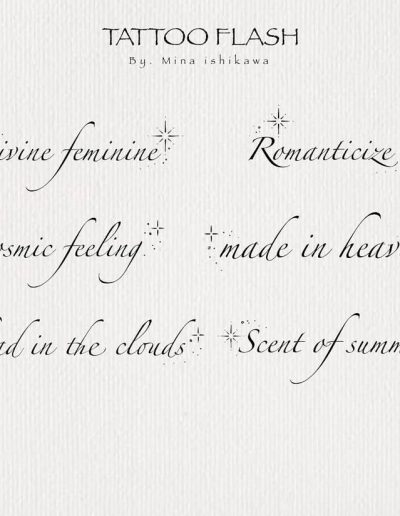 TATTOO FLASH
By. Mina ishikawa
ivine feminine
Romanticize
osmic feeling
made in heav
ad in the clouds
Scent of summ